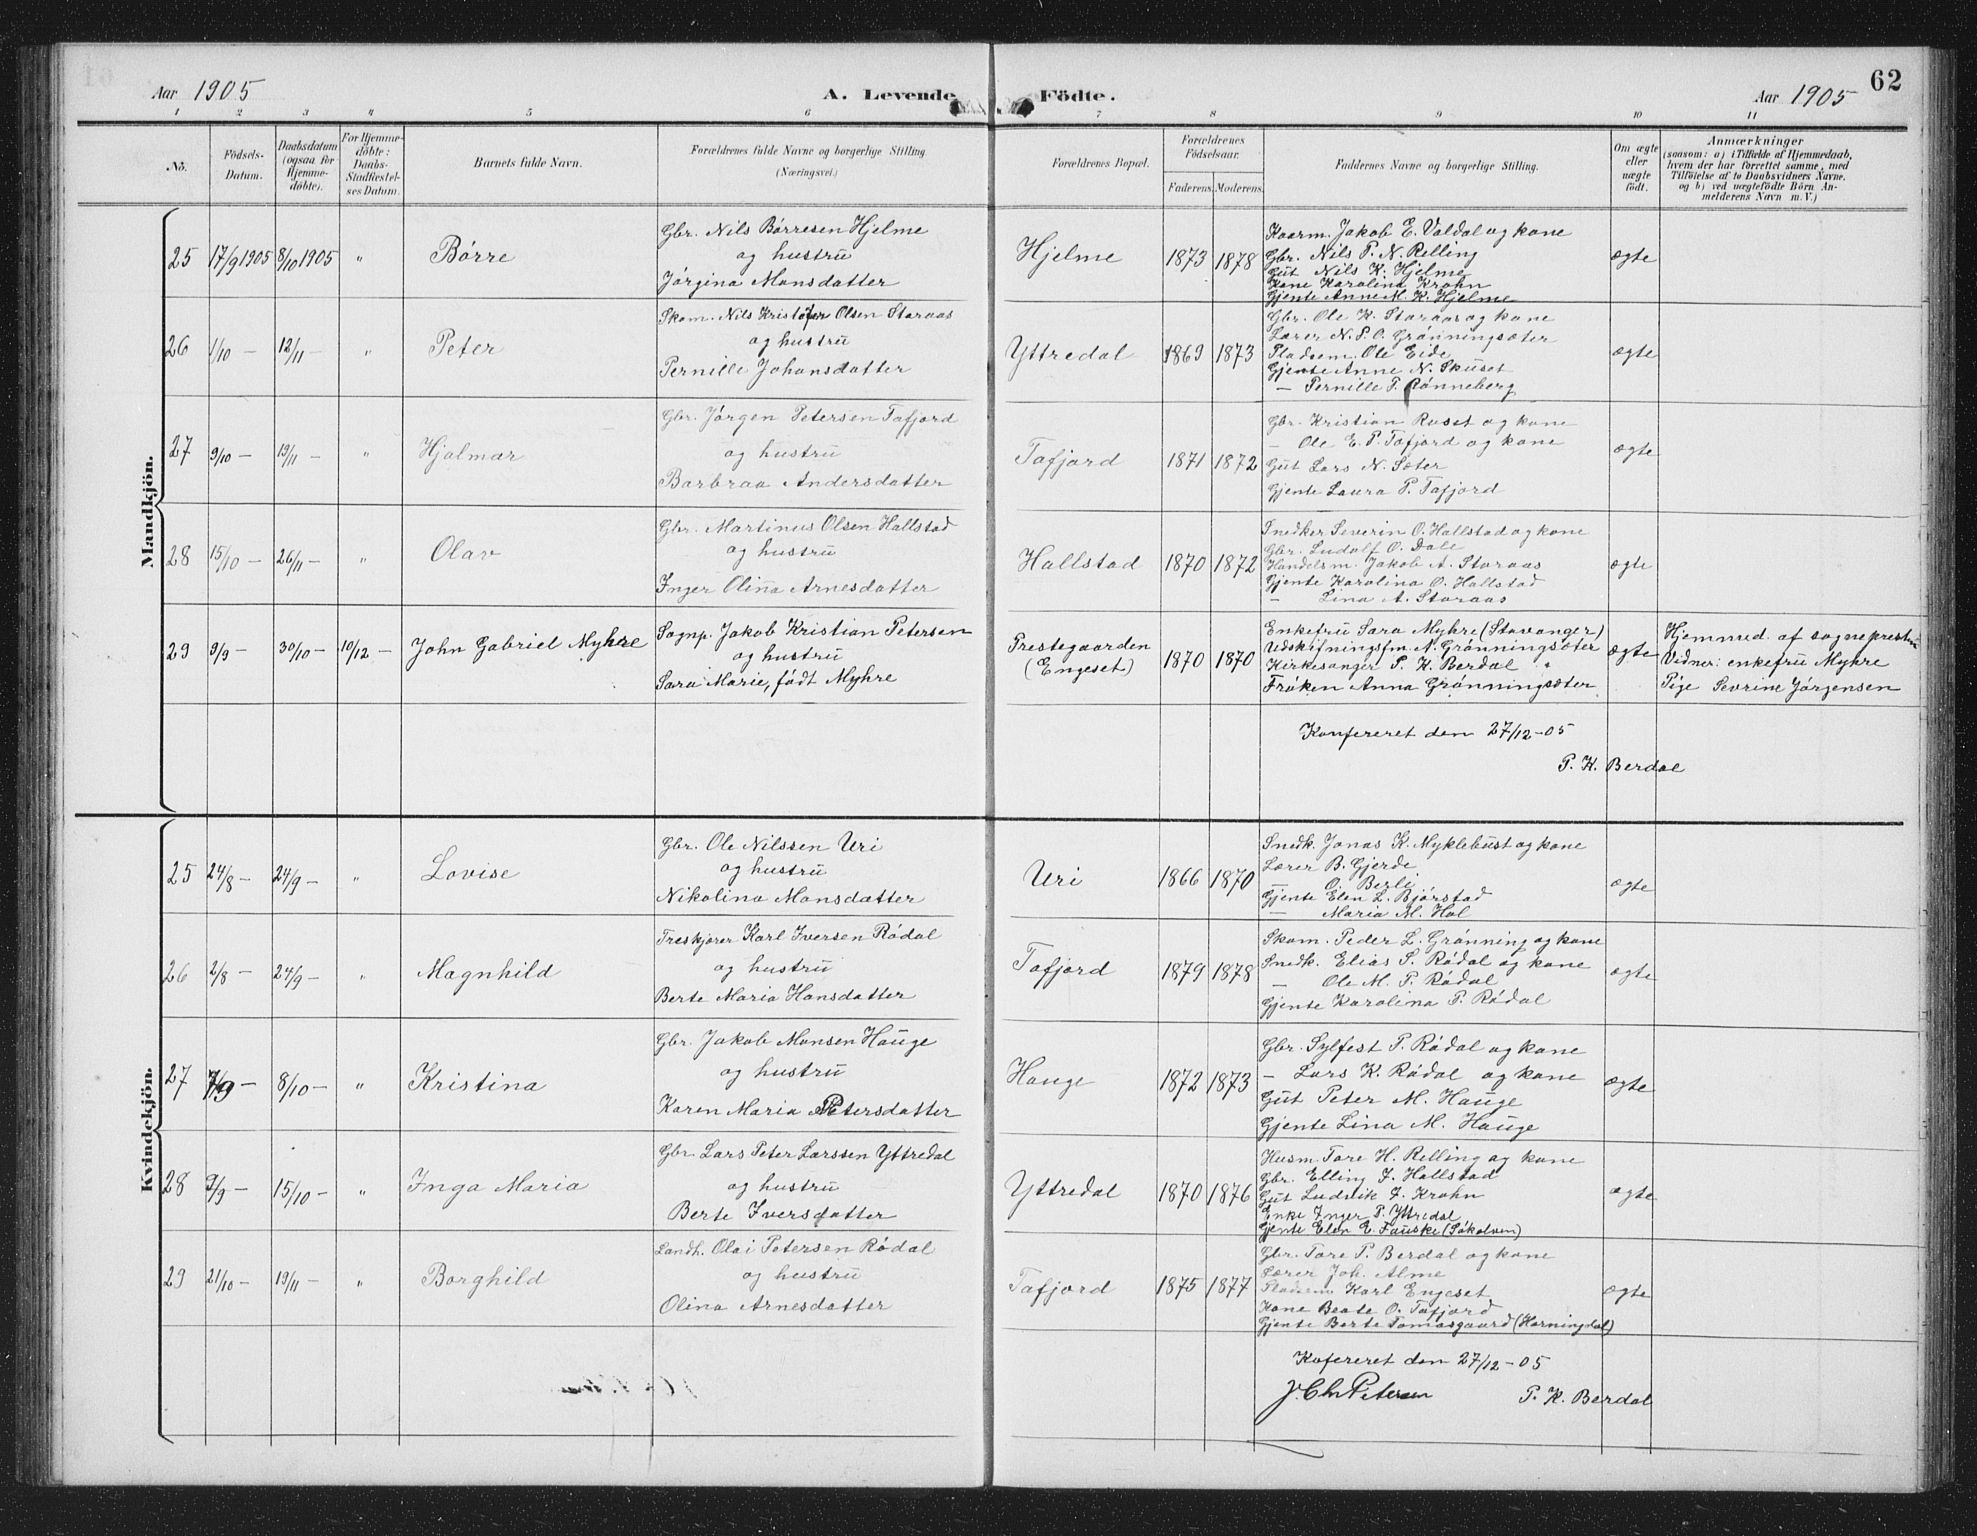 62
Aar 1905
A. Levende Födte.
Aar 1905
1 2 3 4 5 6 7 8 9 10 11
No.
Födsels-Datum.
Daabsdatum (ogsaa for Hjemme-döbte).
For Hjemme-döbte: Daabs-Stadfæstel-ses Datum.
Barnets fulde Navn.
Forældrenes fulde Navne og borgerlige Stilling. (Næringsvei.)
Forældrenes Bopæl.
Forældrenes Födselsaar.
Faderens. Moderens.
Faddernes Navne og borgerlige Stilling.
Om ægte eller uægte födt.
Anmærkninger
(saasom: a) i Tilfælde af Hjemmedaab, hvem der har forrettet samme, med Tilföielse af to Daabsvidners Navne, og b) ved uægtefödte Börn An-melderens Navn m.V.)
Mandkjön.
25 17/9 1905 8/10 1905 " Børre
Gbr. Nils Børresen Hjelme
og hustru
Jørgina Monsdatter
Hjelme 1873 1878
Kaarm. Jakob E. Valdal og kone
Gbr. Nils P. N. Relling
Gut Nils K. Hjelme
Kone Karolina Krohn
Gjente Anne M. K. Hjelme
ægte
26 1/10 – 12/11 – " Peter
Skom. Nils Kristofer Olsen Storaas
og hustru
Pernille Johansdatter
Yttredal 1869 1873
Gbr. Ole K. Storaas og kone
Lærer N. P. O. Grønningsæter
Pladsem. Ole Eide
Gjente Anne N. Skuset
– Pernille P. Rønneberg
ægte
27 9/10 – 19/11 – " Hjalmar
Gbr. Jørgen Petersen Tafjord
og hustru
Barbraa Andersdatter
Tafjord 1871 1872
Gbr. Kristian Ruset og kone
– Ole E. P. Tafjord og kone
Gut Lars N. Sæter
Gjente Laura P. Tafjord
ægte
28 15/10 – 26/11 – " Olav
Gbr. Martinus Olsen Hallstad
og hustru
Inger Olina Arnesdatter
Hallstad 1870 1872
Snedker Severin O. Hallstad og kone
Gbr. Ludolf O. Dale
Handelsm. Jakob A. Storaas
Gjente Karolina O. Hallstad
– Lina A. Storaas
ægte
29 9/9 – 30/10 – 10/12 – John Gabriel Myhre
Sognp. Jakob Kristian Petersen
og hustru
Sara Marie, født Myhre
Prestegaarden
(Engeset)
1870 1870
Enkefru Sara Myhre (Stavanger)
Udskiftningsfm. A. Grønningsæter
Kirkesanger P. K. Berdal "
Frøken Anna Grønningsæter
ægte
Hjemmed. af sogneprest
Vidner: enkefru Myhre
Pige Sevrine Jørgensen
Konfereret den 27/12–05
P. K. Berdal
Kvindekjön.
25 24/8 – 24/9 – " Lovise
Gbr. Ole Nilssen Uri
og hustru
Nikolina Monsdatter
Uri 1866 1870
Snedk. Jonas K. Myklebust og kone
Lærer B. Gjerde
– O. Berli
Gjente Elen L. Bjørstad
– Maria M. Hol
ægte
26 2/8 – 24/9 – " Magnhild
Treskjærer Karl Iversen Rødal
og hustru
Berte Maria Hansdatter
Tafjord 1879 1878
Skom. Peder L. Grønning og kone
Snedk. Elias S. Rødal og kone
– Ole M. P. Rødal
Gjente Karolina P. Rødal
ægte
27 7/9 – 8/10 – " Kristina
Gbr. Jakob Monsen Hauge
og hustru
Karen Maria Petersdatter
Hauge 1872 1873
Gbr. Sylfest P. Rødal og kone
– Lars K. Rødal og kone
Gut Peter M. Hauge
Gjente Lina M. Hauge
ægte
28 /9 – 15/10 – " Inga Maria
Gbr. Lars Peter Larssen Yttredal
og hustru
Berte Iversdatter
Yttredal 1870 1876
Husm. Tore H. Relling og kone
Gbr. Elling J. Hallstad
Gut Ludvik J. Krohn
Enke Inger P. Yttredal
Gjente Elen E. Fauske (Søkolven)
ægte
29 21/10 – 19/11 – " Borghild
Landh. Olai Petersen Rødal
og hustru
Olina Arnesdatter
Tafjord 1875 1877
Gbr. Tore P. Berdal og kone
Lærer Joh. Alme
Pladsem Karl Engeset
Kone Beate O. Tafjord
Gjente Berte Tomasgaard (Horningdal)
ægte
Kofereret den 27/12–05
J. Chr Petersen
P. K. Berdal